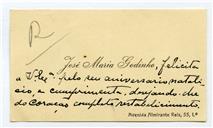 R
José Maria Godinho, felicita
a V. Exª pelo seu aniversario natali-
cio, e cumprimenta, desejando-lhe
do coração completo restabelecimento.
Avenida Almirante Reis, 55, 1.º